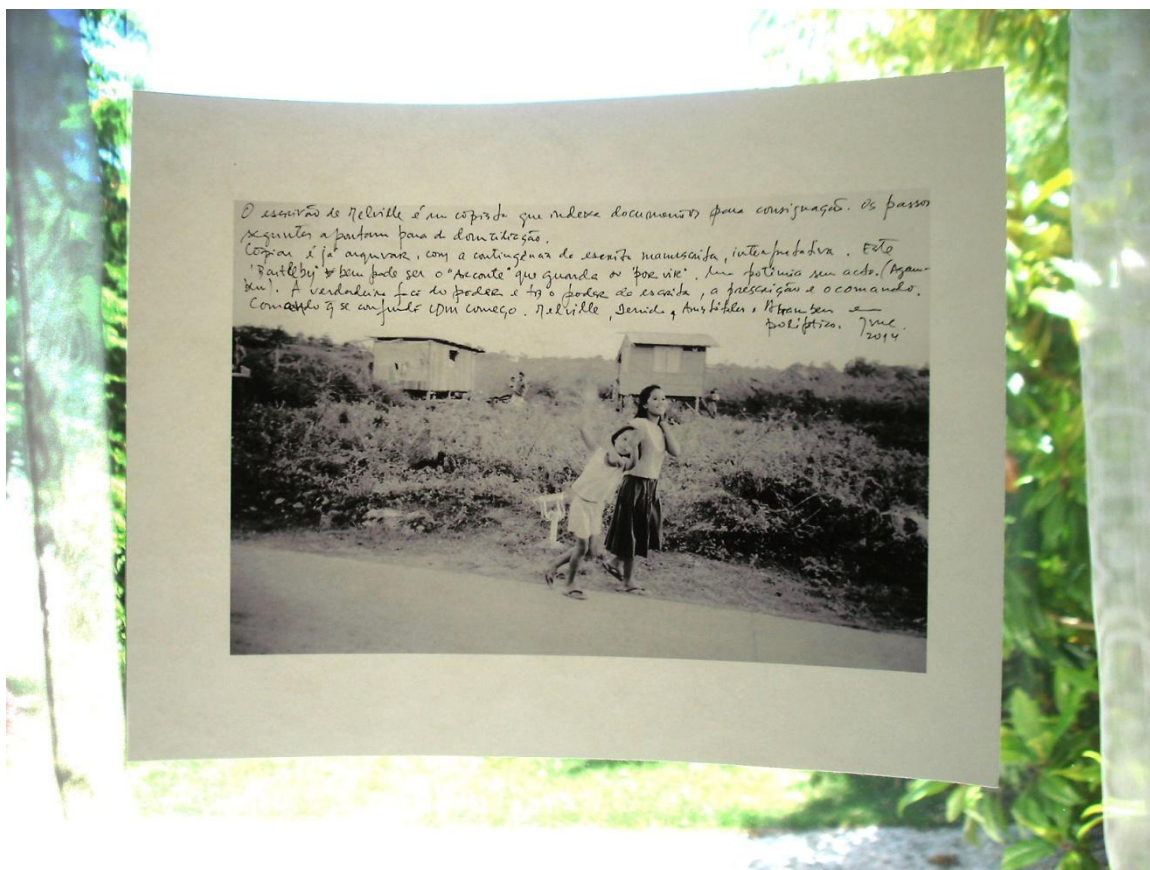 O escrivão de Melville é um copista que indexa documentos para consignação. Os passos
seguintes apontam para a domiciliação.
Copiar é já arquivar, com a contingência da escrita manuscrita, interpretativa. Este
'Bartleby' bem pode ser o "Arconte" que guarda o 'por vir'. Uma potência sem acto. (Agam-
ben). A verdadeira face do poder é o poder da escrita, a prescrição e o comando.
Comando q se confunde com começo. Melville, Derrida, Aristóteles e Agamben em
políptico.
2014